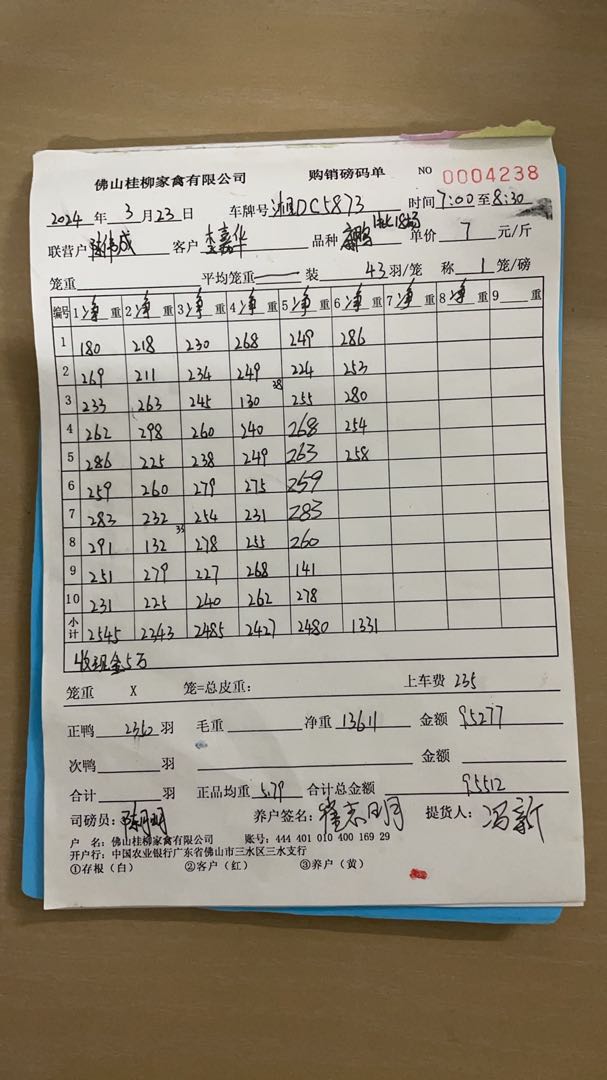 佛山桂柳家禽有限公司 购销磅码单 NO 0004238
2024 年 3 月 23 日 车牌号 湘DC5873 时间 7:00 至 8:30
联营户 陈伟成 客户 李嘉华 品种 单价 7 元/斤
笼重 平均笼重 — 装 43 羽/笼 称 1 笼/磅
编号 1 净 重 2 净 重 3 净 重 4 净 重 5 净 重 6 净 重 7 净 重 8 净 重 9 重
1 180 218 230 268 249 286
2 269 211 234 249 224 253
3 233 263 245 130 28 255 280
4 262 298 260 240 268 254
5 286 225 238 249 263 258
6 259 260 279 275 259
7 283 232 254 231 283
8 291 132 33 278 255 260
9 251 279 227 268 141
10 231 225 240 262 278
小计 2545 2343 2485 2427 2480 1331
收现金5万
笼重 X 笼=总皮重: 上车费 235
正鸭 2350 羽 毛重 净重 13611 金额 95277
次鸭 羽 金额
合计 羽 正品均重 5.79 合计总金额 95512
司磅员: 陈明明 养户签名: 提货人: 冯新
户 名: 佛山桂柳家禽有限公司 账号: 444 401 010 400 169 29
开户行: 中国农业银行广东省佛山市三水区三水支行
①存根(白) ②客户(红) ③养户(黄)